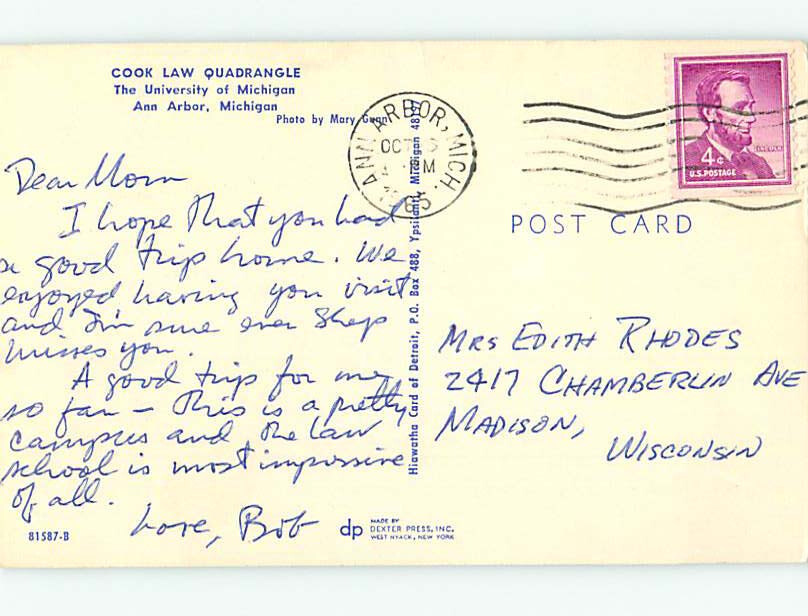 COOK LAW QUADRANGLE
The University of Michigan
Ann Arbor, Michigan
Photo by Mary Gunn
Dear Mom
I hope that you had
a good trip home. We
enjoyed having you visit
and I'm sure even Shep
misses you.
A good trip for me
so far – This is a pretty
campus and the law
school is most impressive
of all.
Love, Bob
81587-B
dp
MADE BY
DEXTER PRESS, INC.
WEST NYACK, NEW YORK
Hiawatha Card of Detroit, P.O. Box 488, Ypsilanti, Michigan
ANN ARBOR, MICH.
OCT
PM
LINCOLN
4¢
U.S. POSTAGE
POST CARD
MRS EDITH RHODES
2417 CHAMBERLIN AVE
MADISON,
WISCONSIN